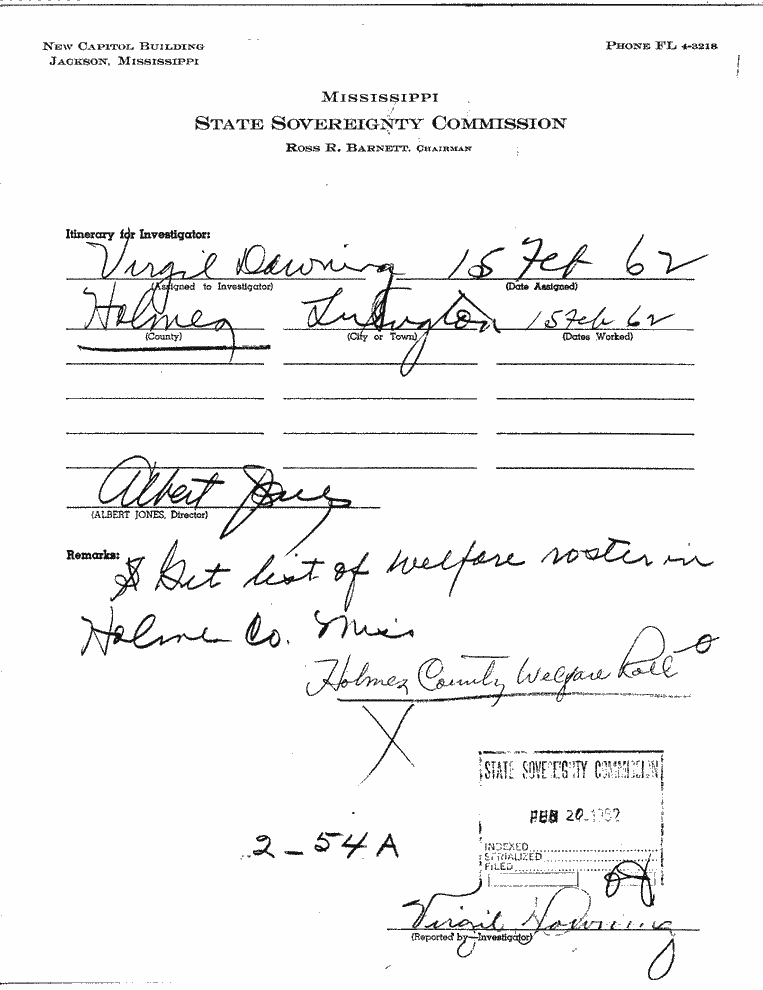 NEW CAPITOL BUILDING
JACKSON, MISSISSIPPI
PHONE FL 4-3218
MISSISSIPPI
STATE SOVEREIGNTY COMMISSION
ROSS R. BARNETT, CHAIRMAN
Itinerary for Investigator:
Virgil Downing 15 Feb 62
(Assigned to Investigator) (Date Assigned)
Holmes Lexington 15 Feb 62
(County) (City or Town) (Dates Worked)
Albert Jones
(ALBERT JONES, Director)
Remarks:
Get list of welfare roster in
Holme Co. Miss
Holmes County Welfare Roll
STATE SOVEREIGNTY COMMISSION
FEB 20 1962
2-54A
INDEXED
SERIALIZED
FILED
Virgil Downing
(Reported by—Investigator)